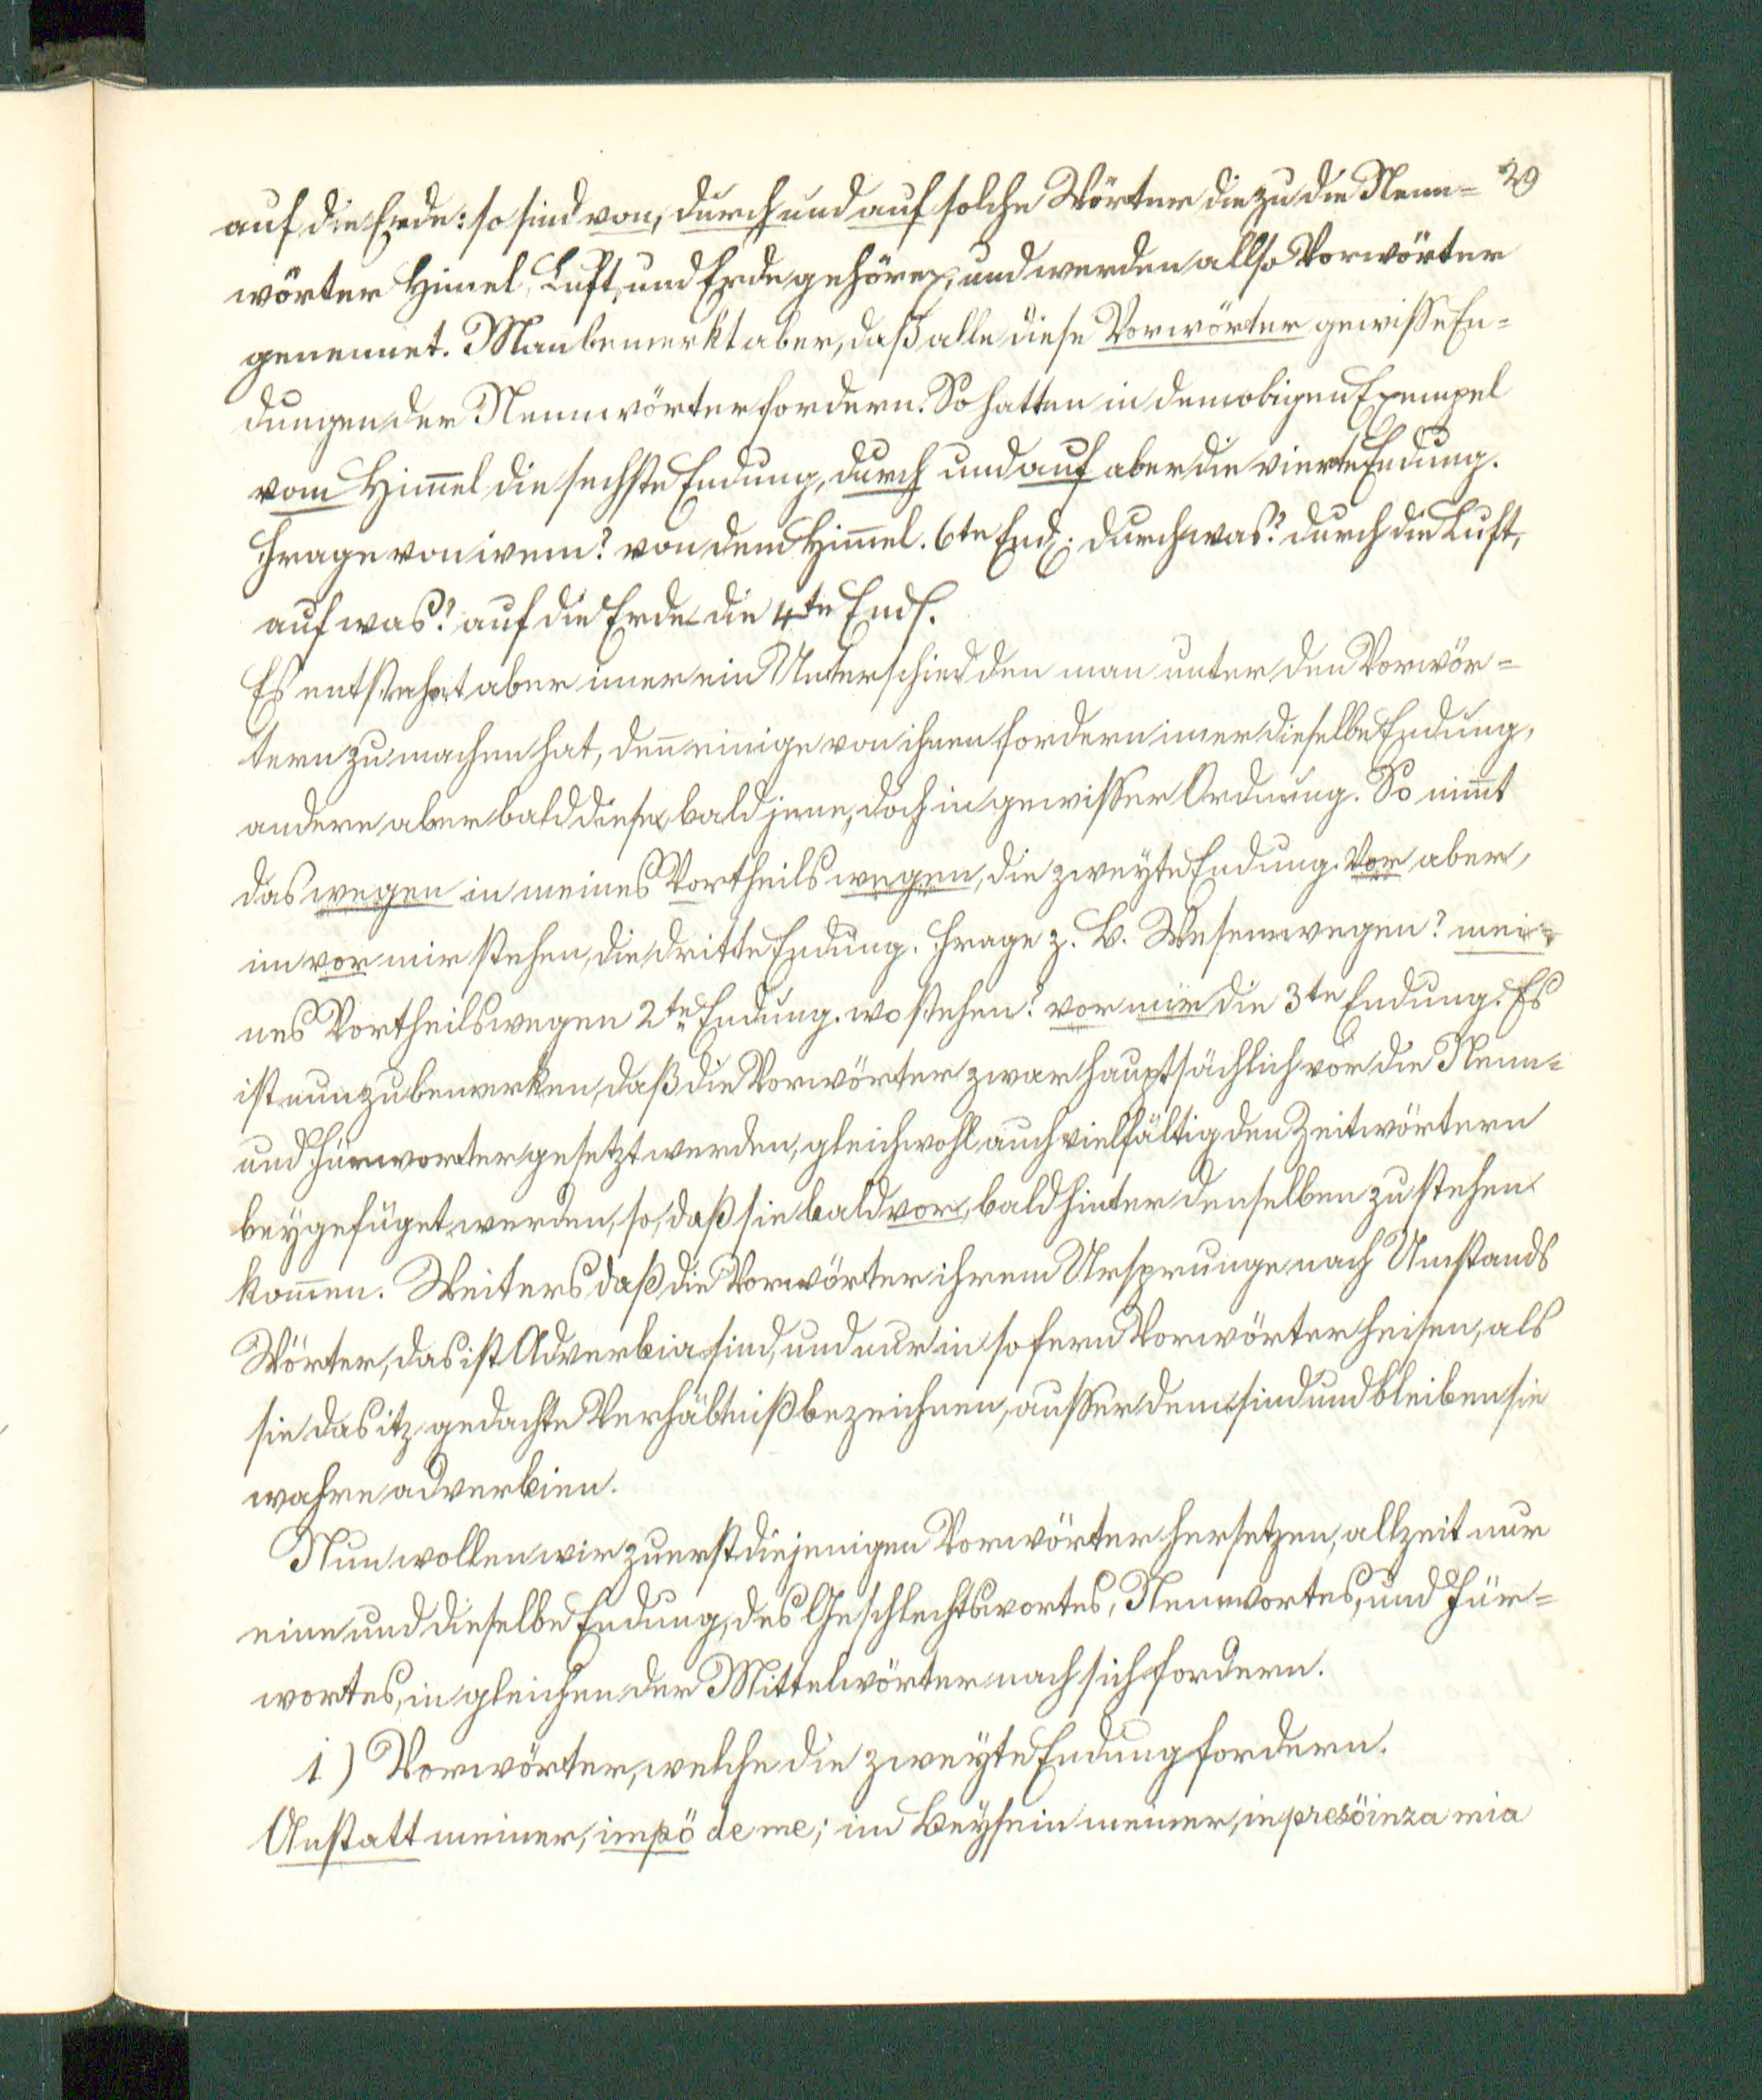 auf die Erde: so sind von, durch und auf solche Wörter die zu die Nenn= 29
wörter Himel, Luft, und Erde gehören, und werden allso Vorwörter
genennet. Man bemerkt aber, daß alle diese Vorwörter gewisse En=
dungen der Nennwörter fordern. So hatten in dem obigen Exempel
vom Him̄el die sechste Endung, durch und auf aber die vierte Endung.
Frage von wem? von dem Him̄el. 6te End. durch was? durch die Luft,
auf was? auf die Erde die 4te End.
Es entstehet aber imer ein Unterschied den man unter den Vorwör=
tern zu machen hat, den̄ einige von ihnen fordern imer dieselbe Endung,
andere aber bald diese, bald jene, doch in gewisser Ordnung. So nim̄t
das wegen in meines Vortheils wegen, die zweyte Endung. Vor aber,
im vor mir stehen, die dritte Endung. Frage z. B. Wesenwegen? mei=
nes Vortheilswegen 2te Endung. wo stehen? vor mir die 3te Endung. Es
ist nun zu bemerken, daß die Vorwörter zwar hauptsächlich vor die Nenn=
und Fürworter gesetzt werden, gleichwohl auch vielfältig den Zeitwörtern
beygefüget werden, so, daß sie bald vor, bald hinter denselben zu stehen
kom̄en. Weiters daß die Vorwörter ihrem Ursprunge nach Umstands
Wörter, das ist Adverbia sind, und nur in so fern Vorwörter heisen, als
sie das itz gedachte Verhältniß bezeichnen, ausser dem sind und bleiben sie
wahre adverbien.
Nun wollen wir zuerst diejenigen Vorwörter hersetzen, allzeit nur
eine und dieselbe Endung, des Geschlechtswortes, Nennwortes, und Für=
wortes, in gleichen der Mittelwörter nach sich fordern.
1) Vorwörter, welche die zweyte Endung fordern.
Anstatt meiner, impö de me; im Beysein meiner, in presöinza mia